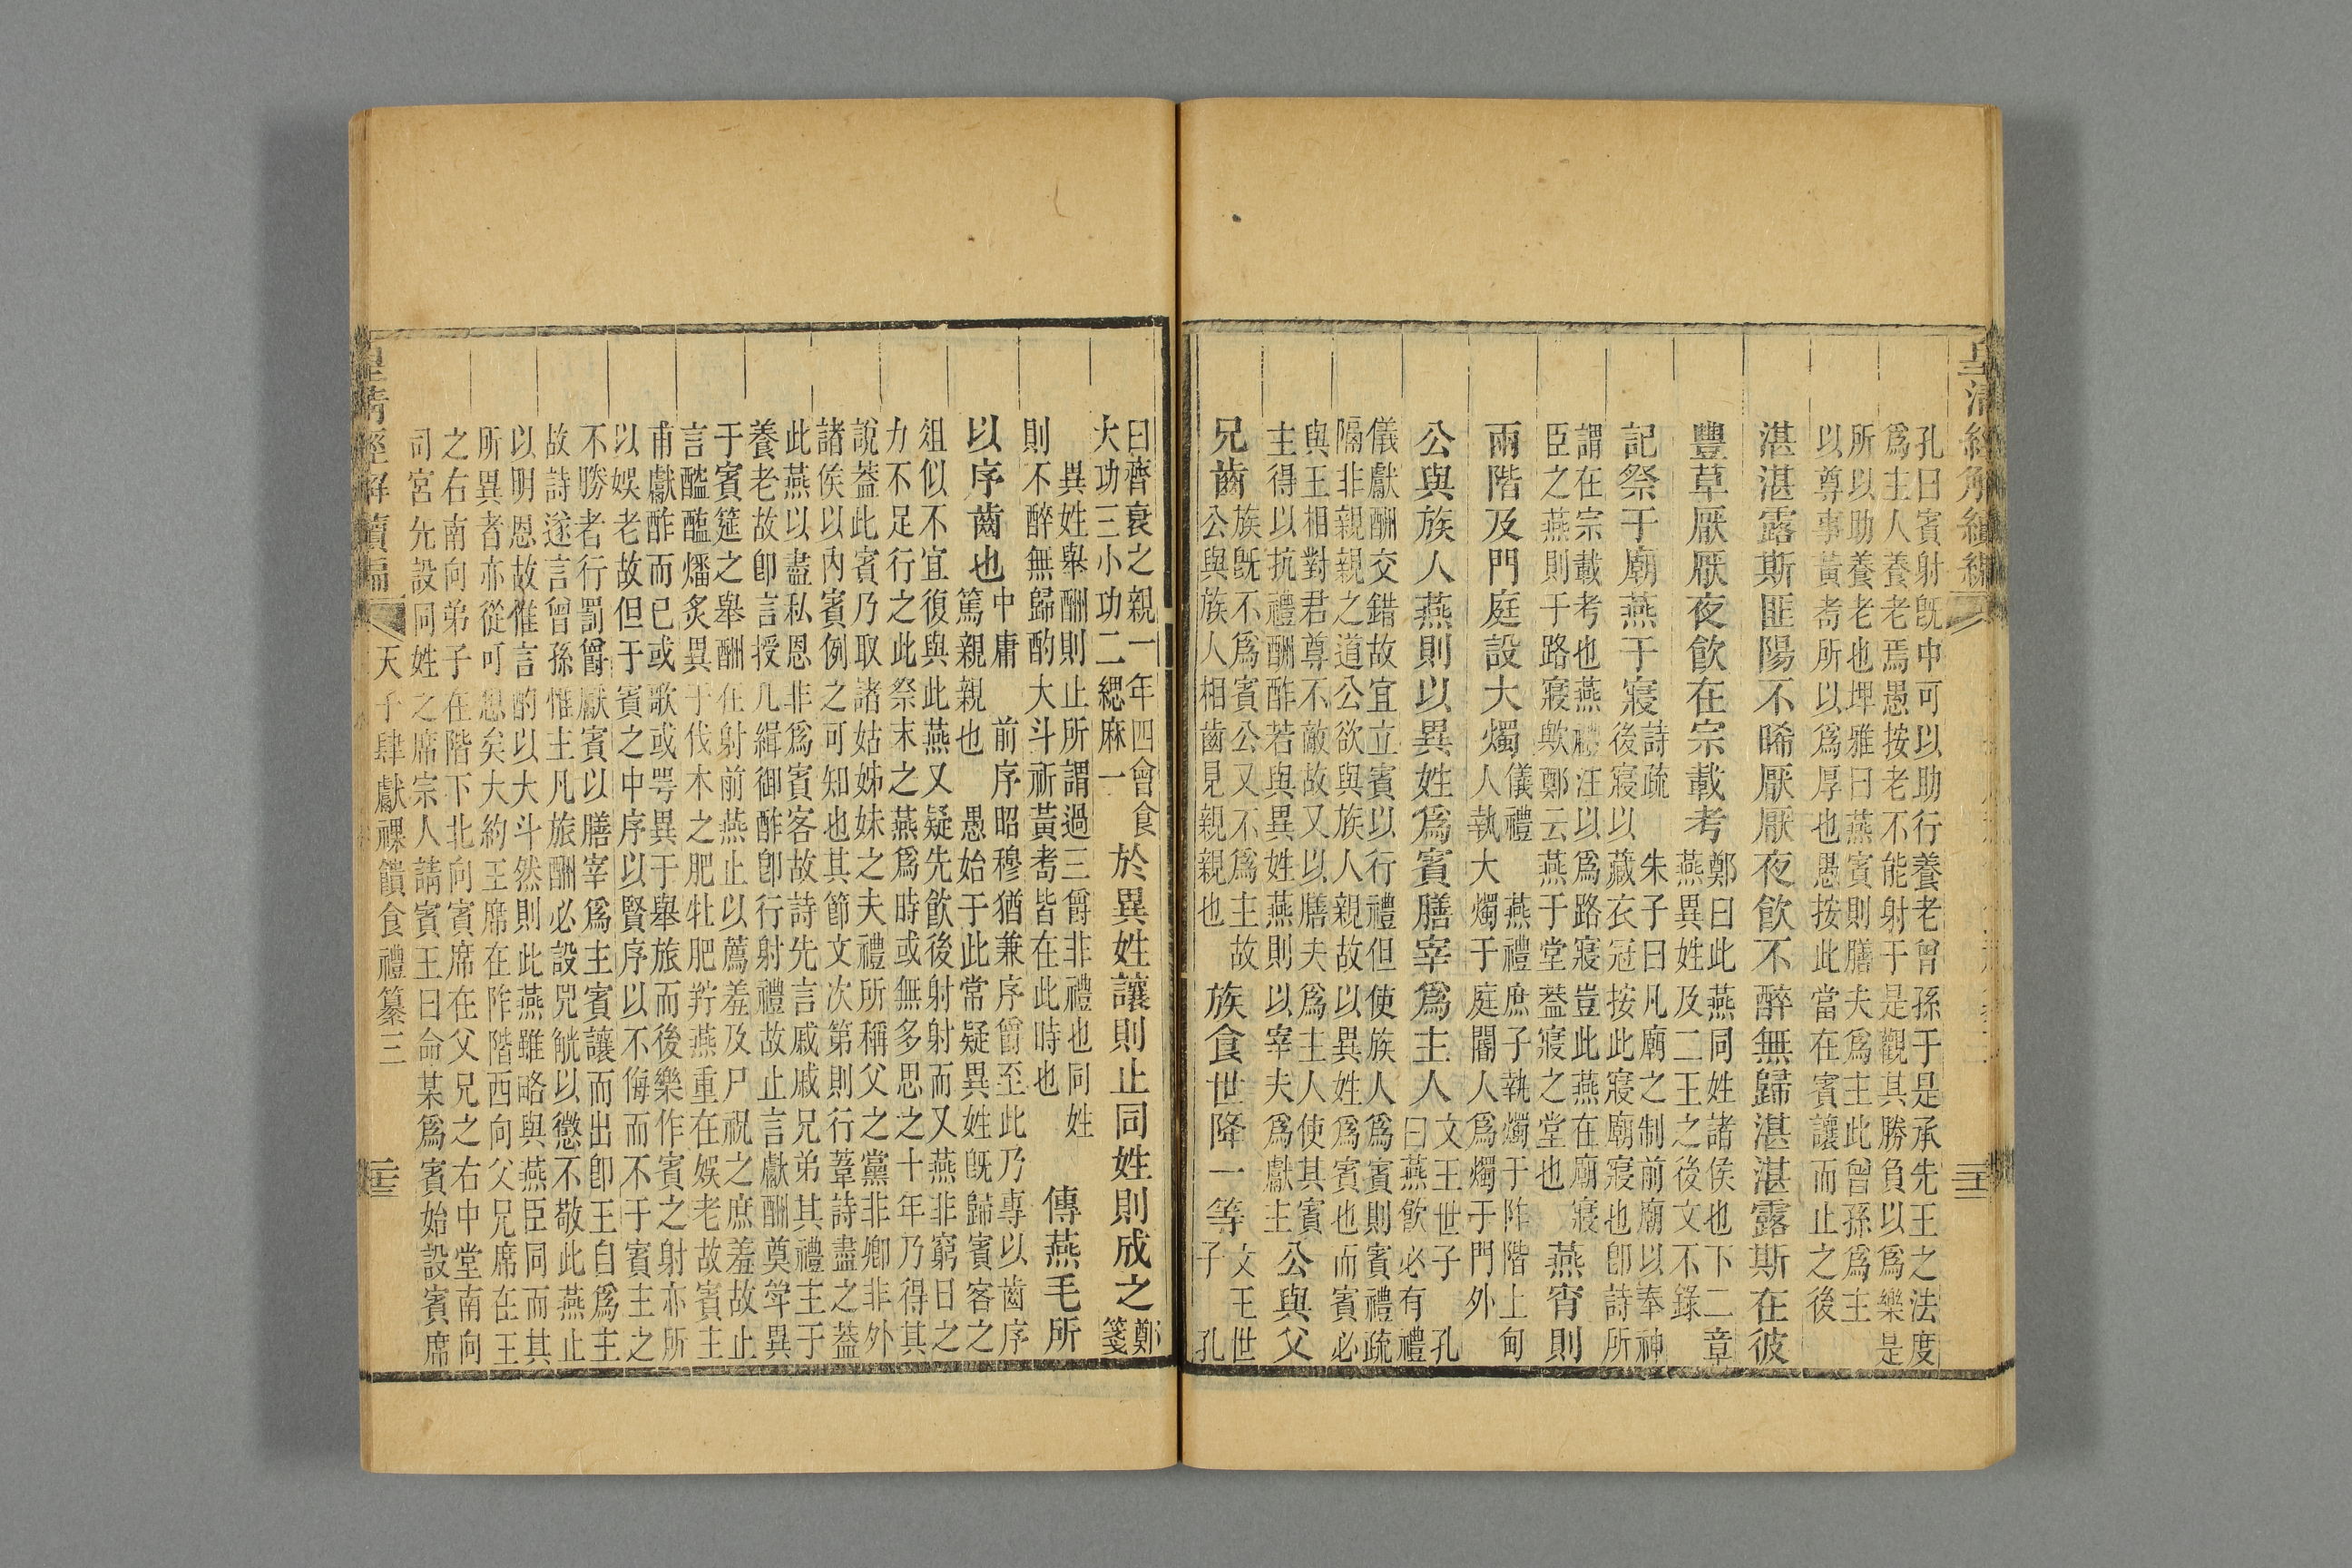 皇清經解續編
孔曰賓射既中可以助行養老曾孫于是承先王之法度
爲主人養老焉愚按老不能射于是觀其勝負以爲樂是
所以助養老也埤雅曰燕賓則膳夫爲主此曾孫爲主
以尊事黃耇所以爲厚也愚按此當在賓讓而止之後
湛湛露斯匪陽不晞厭厭夜飲不醉無歸湛湛露斯在彼
豐草厭厭夜飲在宗載考
鄭曰此燕同姓諸侯也下二章
燕異姓及二王之後文不錄
記祭于廟燕于寢
詩疏
後寢以藏衣冠
朱子曰凡廟之制前廟以奉神
按此寢廟寢也卽詩所
謂在宗載考也燕禮注以爲路寢豈此燕在廟寢
臣之燕則于路寢歟鄭云燕于堂葢寢之堂也
燕宵則
兩階及門庭設大燭
儀禮燕禮庶子執燭于阼階上甸
人執大燭于庭閽人爲燭于門外
公與族人燕則以異姓爲賓膳宰爲主人
文王世子孔
曰燕飲必有禮
儀獻酬交錯故宜立賓以行禮但使族人爲賓則賓禮疏
隔非親親之道公欲與族人親故以異姓爲賓也而賓必
與王相對君尊不敵故又以膳夫爲主人使其賓
主得以抗禮酬酢若與異姓燕則以宰夫爲獻主
公與父
兄齒
族既不爲賓公又不爲主故
公與族人相齒見親親也
族食世降一等
文王世
子孔
曰齊衰之親一年四會食
大功三小功二緦麻一
於異姓讓則止同姓則成之
鄭
箋
異姓舉酬則止所謂過三爵非禮也同姓
則不醉無歸酌大斗祈黃耇皆在此時也
傳燕毛所
以序齒也
中庸
篤親親也
前序昭穆猶兼序爵至此乃專以齒序
愚始于此常疑異姓既歸賓客之
俎似不宜復與此燕又疑先飲後射射而又燕非窮日之
力不足行之此祭末之燕爲時或無多思之十年乃得其
說葢此賓乃取諸姑姊妹之夫禮所稱父之黨非卿非外
諸侯以內賓例之可知也其節文次第則行葦詩盡之葢
此燕以盡私恩非爲賓客故詩先言戚戚兄弟其禮主于
養老故卽言授几緝御酢卽行射禮故止言獻酬奠斝異
于賓筵之舉酬在射前燕止以薦羞及尸祝之庶羞故止
言醓醢燔炙異于伐木之肥牡肥羜燕重在娛老故賓主
甫獻酢而已或歌或咢異于舉旅而後樂作賓之射亦所
以娛老故但于賓之中序以賢序以不侮而不于賓主之
不勝者行罰爵獻賓以膳宰爲主賓讓而出卽王自爲主
故詩遂言曾孫惟主凡旅酬必設兕觥以懲不敬此燕止
以明恩故惟言酌以大斗然則此燕雖略與燕臣同而其
所異者亦從可思矣大約王席在阼階西向父兄席在王
之右南向弟子在階下北向賓席在父兄之右中堂南向
司宮先設同姓之席宗人請賓王曰命某爲賓始設賓席
皇清經解續編 天子肆獻祼饋食禮纂三